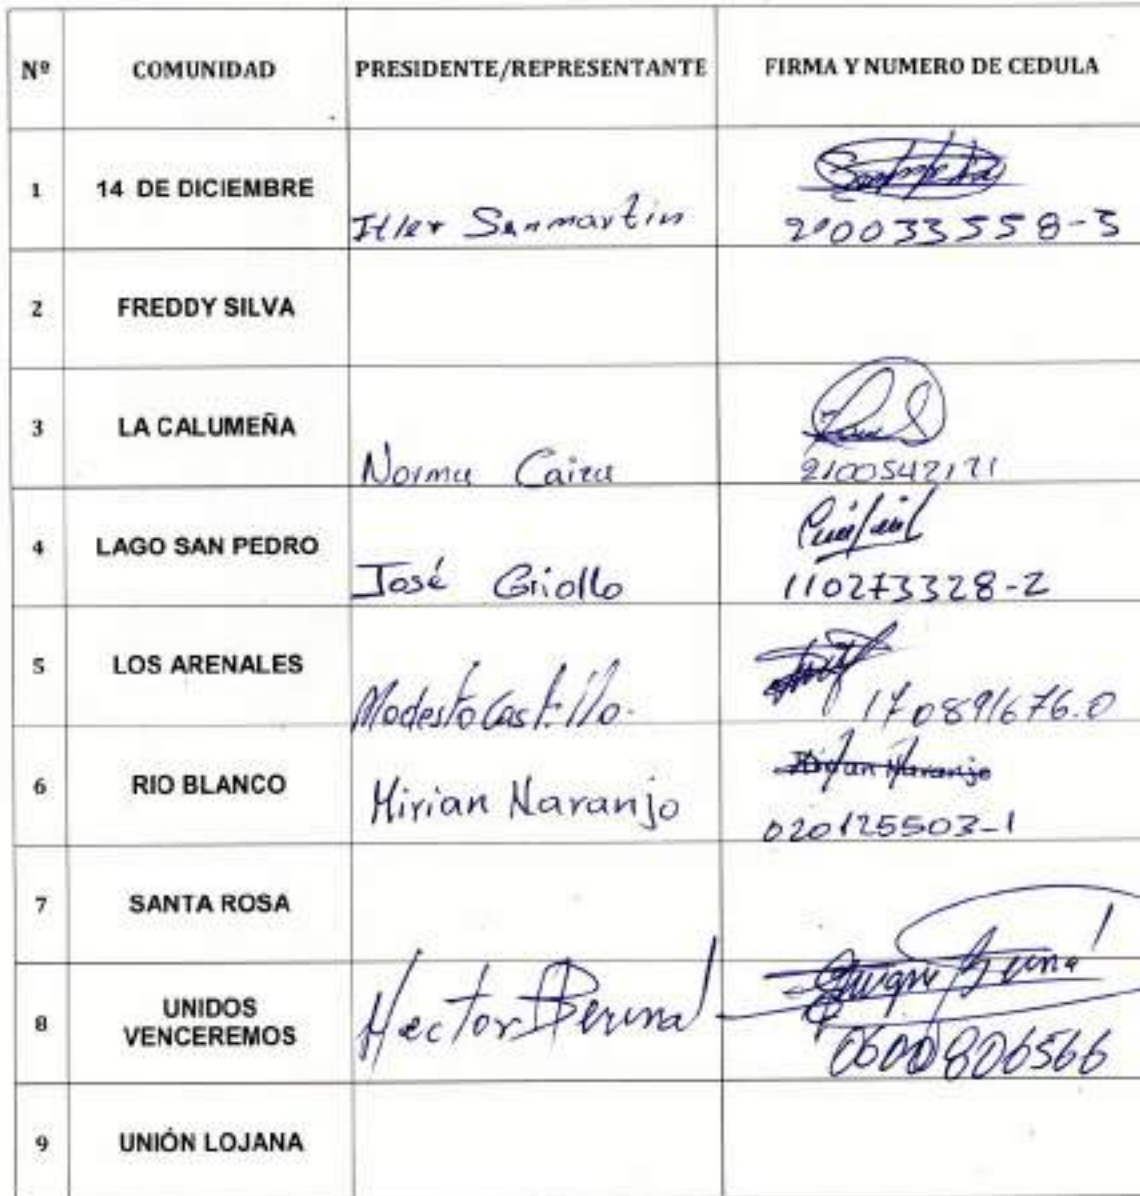 Nº COMUNIDAD PRESIDENTE/REPRESENTANTE FIRMA Y NUMERO DE CEDULA
1 14 DE DICIEMBRE Sanmartin
FREDDY SILVA
2
3 LA CALUMEÑA Norma
2100542171
4 LAGO SAN PEDRO José
110273328-2
5 LOS ARENALES Modesto Castillo.
170891676.0
6 RIO BLANCO Mirian Naranjo Mirian Naranjo
020125503-1
7 SANTA ROSA
8 UNIDOS
VENCEREMOS
Hector Bernal
0600806566
9 UNIÓN LOJANA